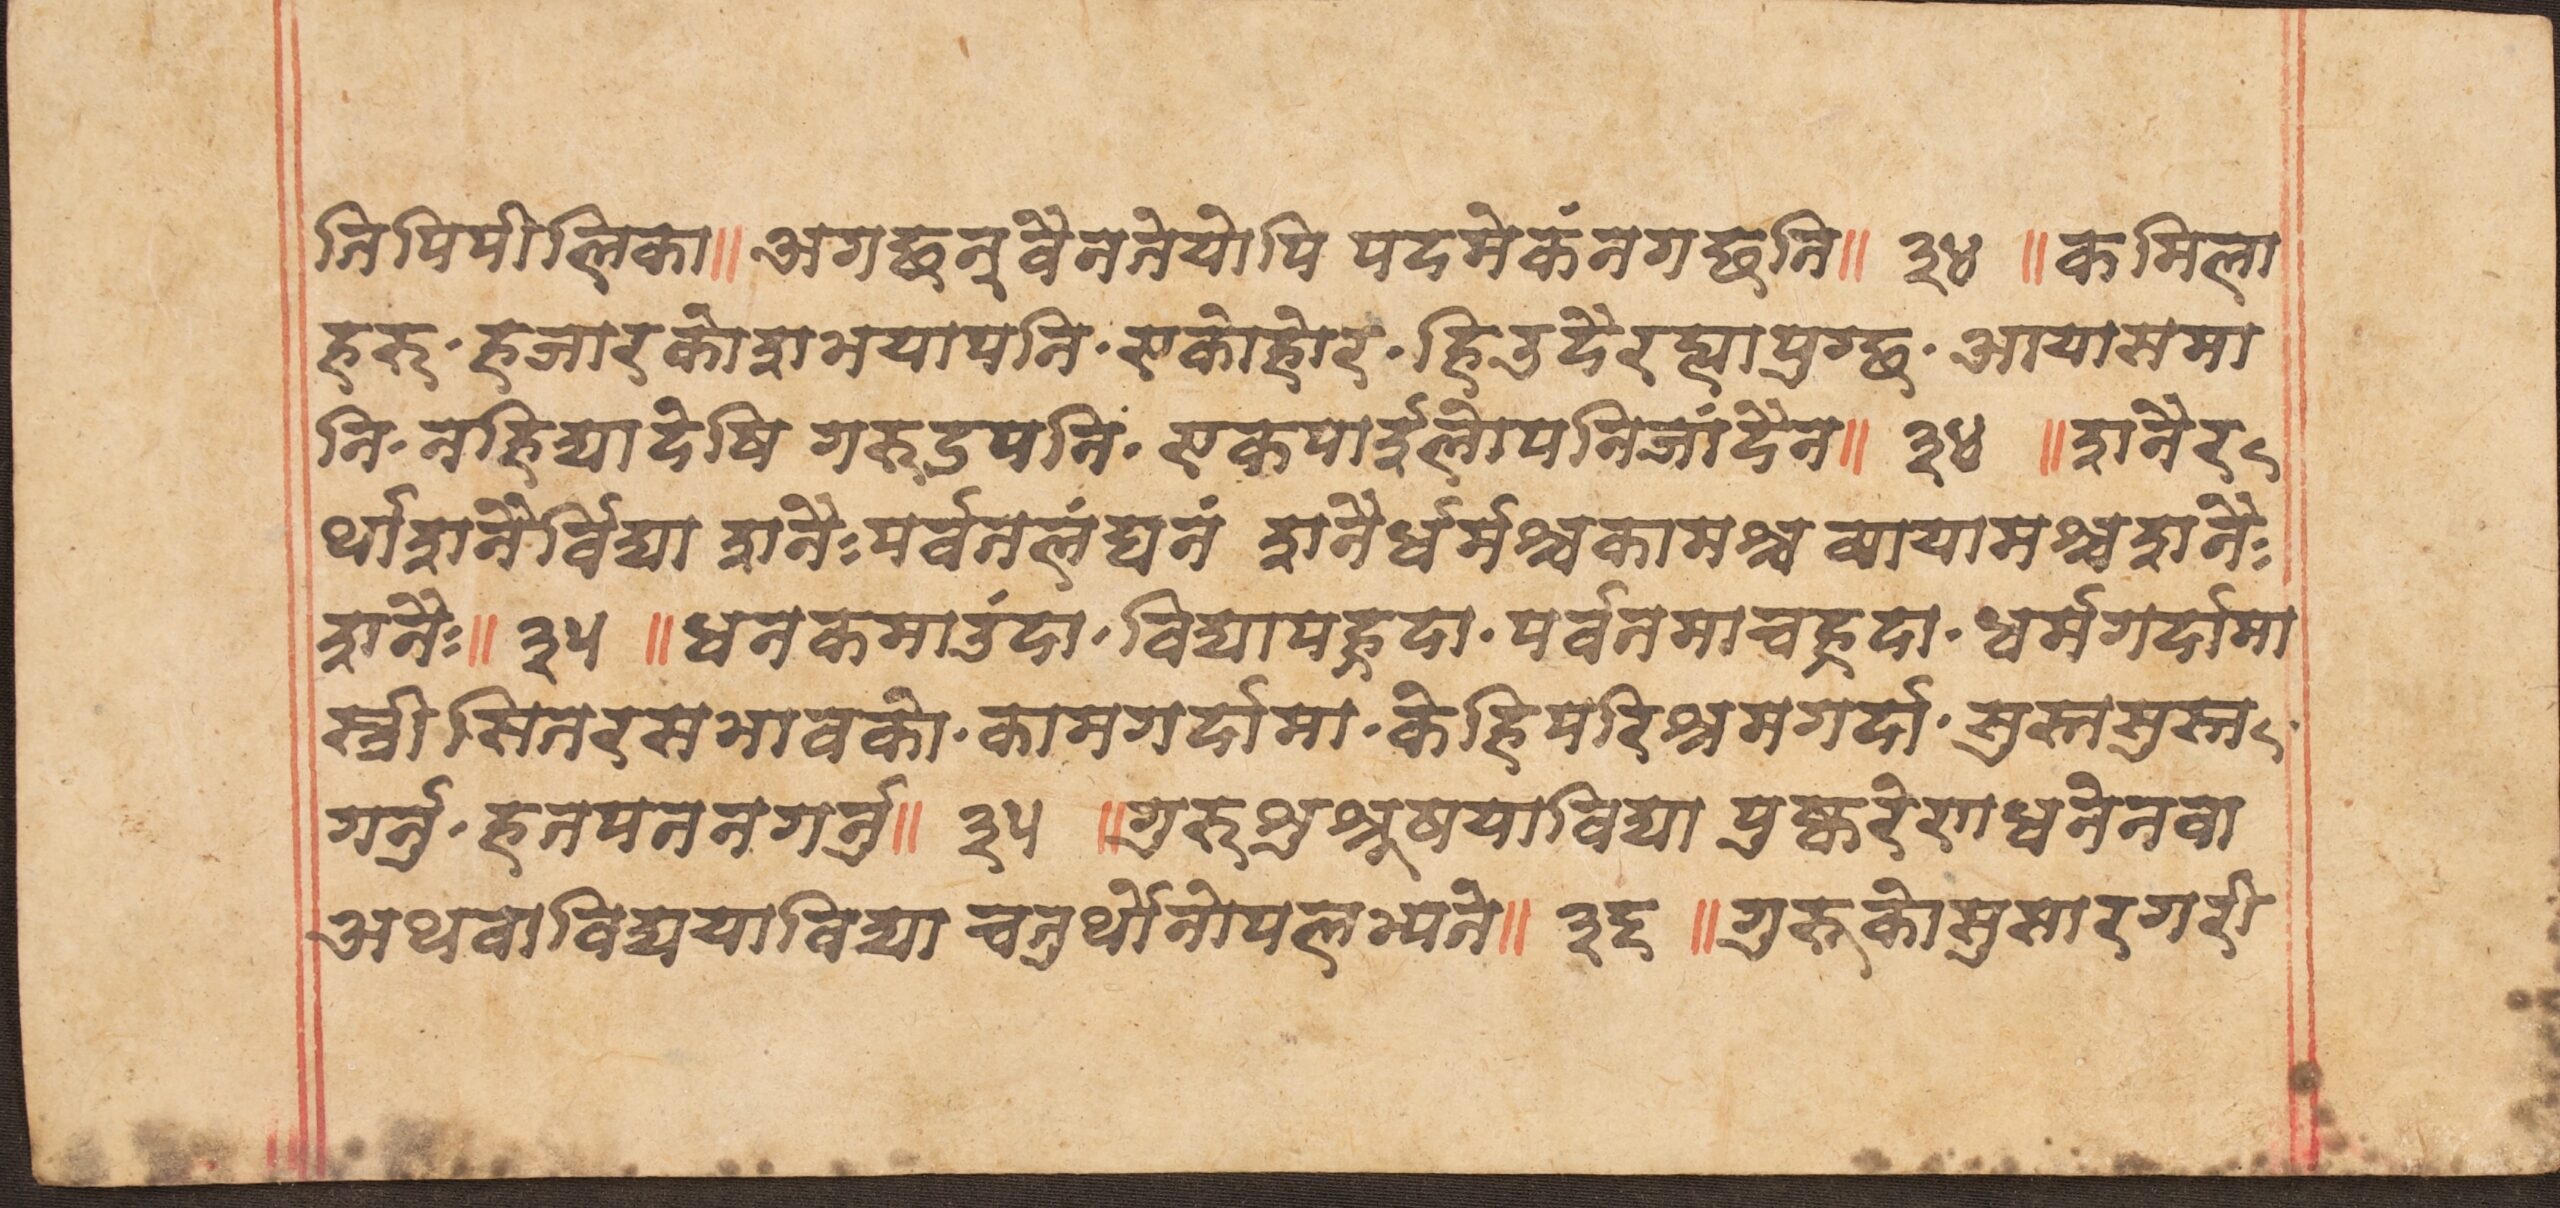 ति पिपीलिका॥ अगछन् वैनतेयोपि पदमेकंनगछति॥ ३४ ॥कमिला
हरु· हजारकोशभयापनि· एकोहोर· हिउदैरह्यापुग्छ· आयासमा
नि· नहिड्यादेषि गरुडपनि· एकपाईलोपनिजांदैन॥ ३४ ॥शनैर
र्थाशनैर्विद्या शनैःपर्वतलंघनं शनैर्धर्मश्चकामश्च व्यायामश्चशनैः
शनैः॥ ३५ ॥धनकमाउंदा· विद्यापह्रदा· पर्वतमाचह्रदा· धर्मगर्दामा
स्त्री सितरसभावको· कामगर्दामा· केहिपरिश्रमगर्दा· सुस्तसुस्त
गर्नु· हतपतनगर्नु॥ ३५ ॥गुरुशुश्रूषयाविद्या पुष्करेणधनेनवा
अथवाविद्ययाविद्या चतुर्थोनोपलभ्यते॥ ३६ ॥गुरुकोसुसारगरी